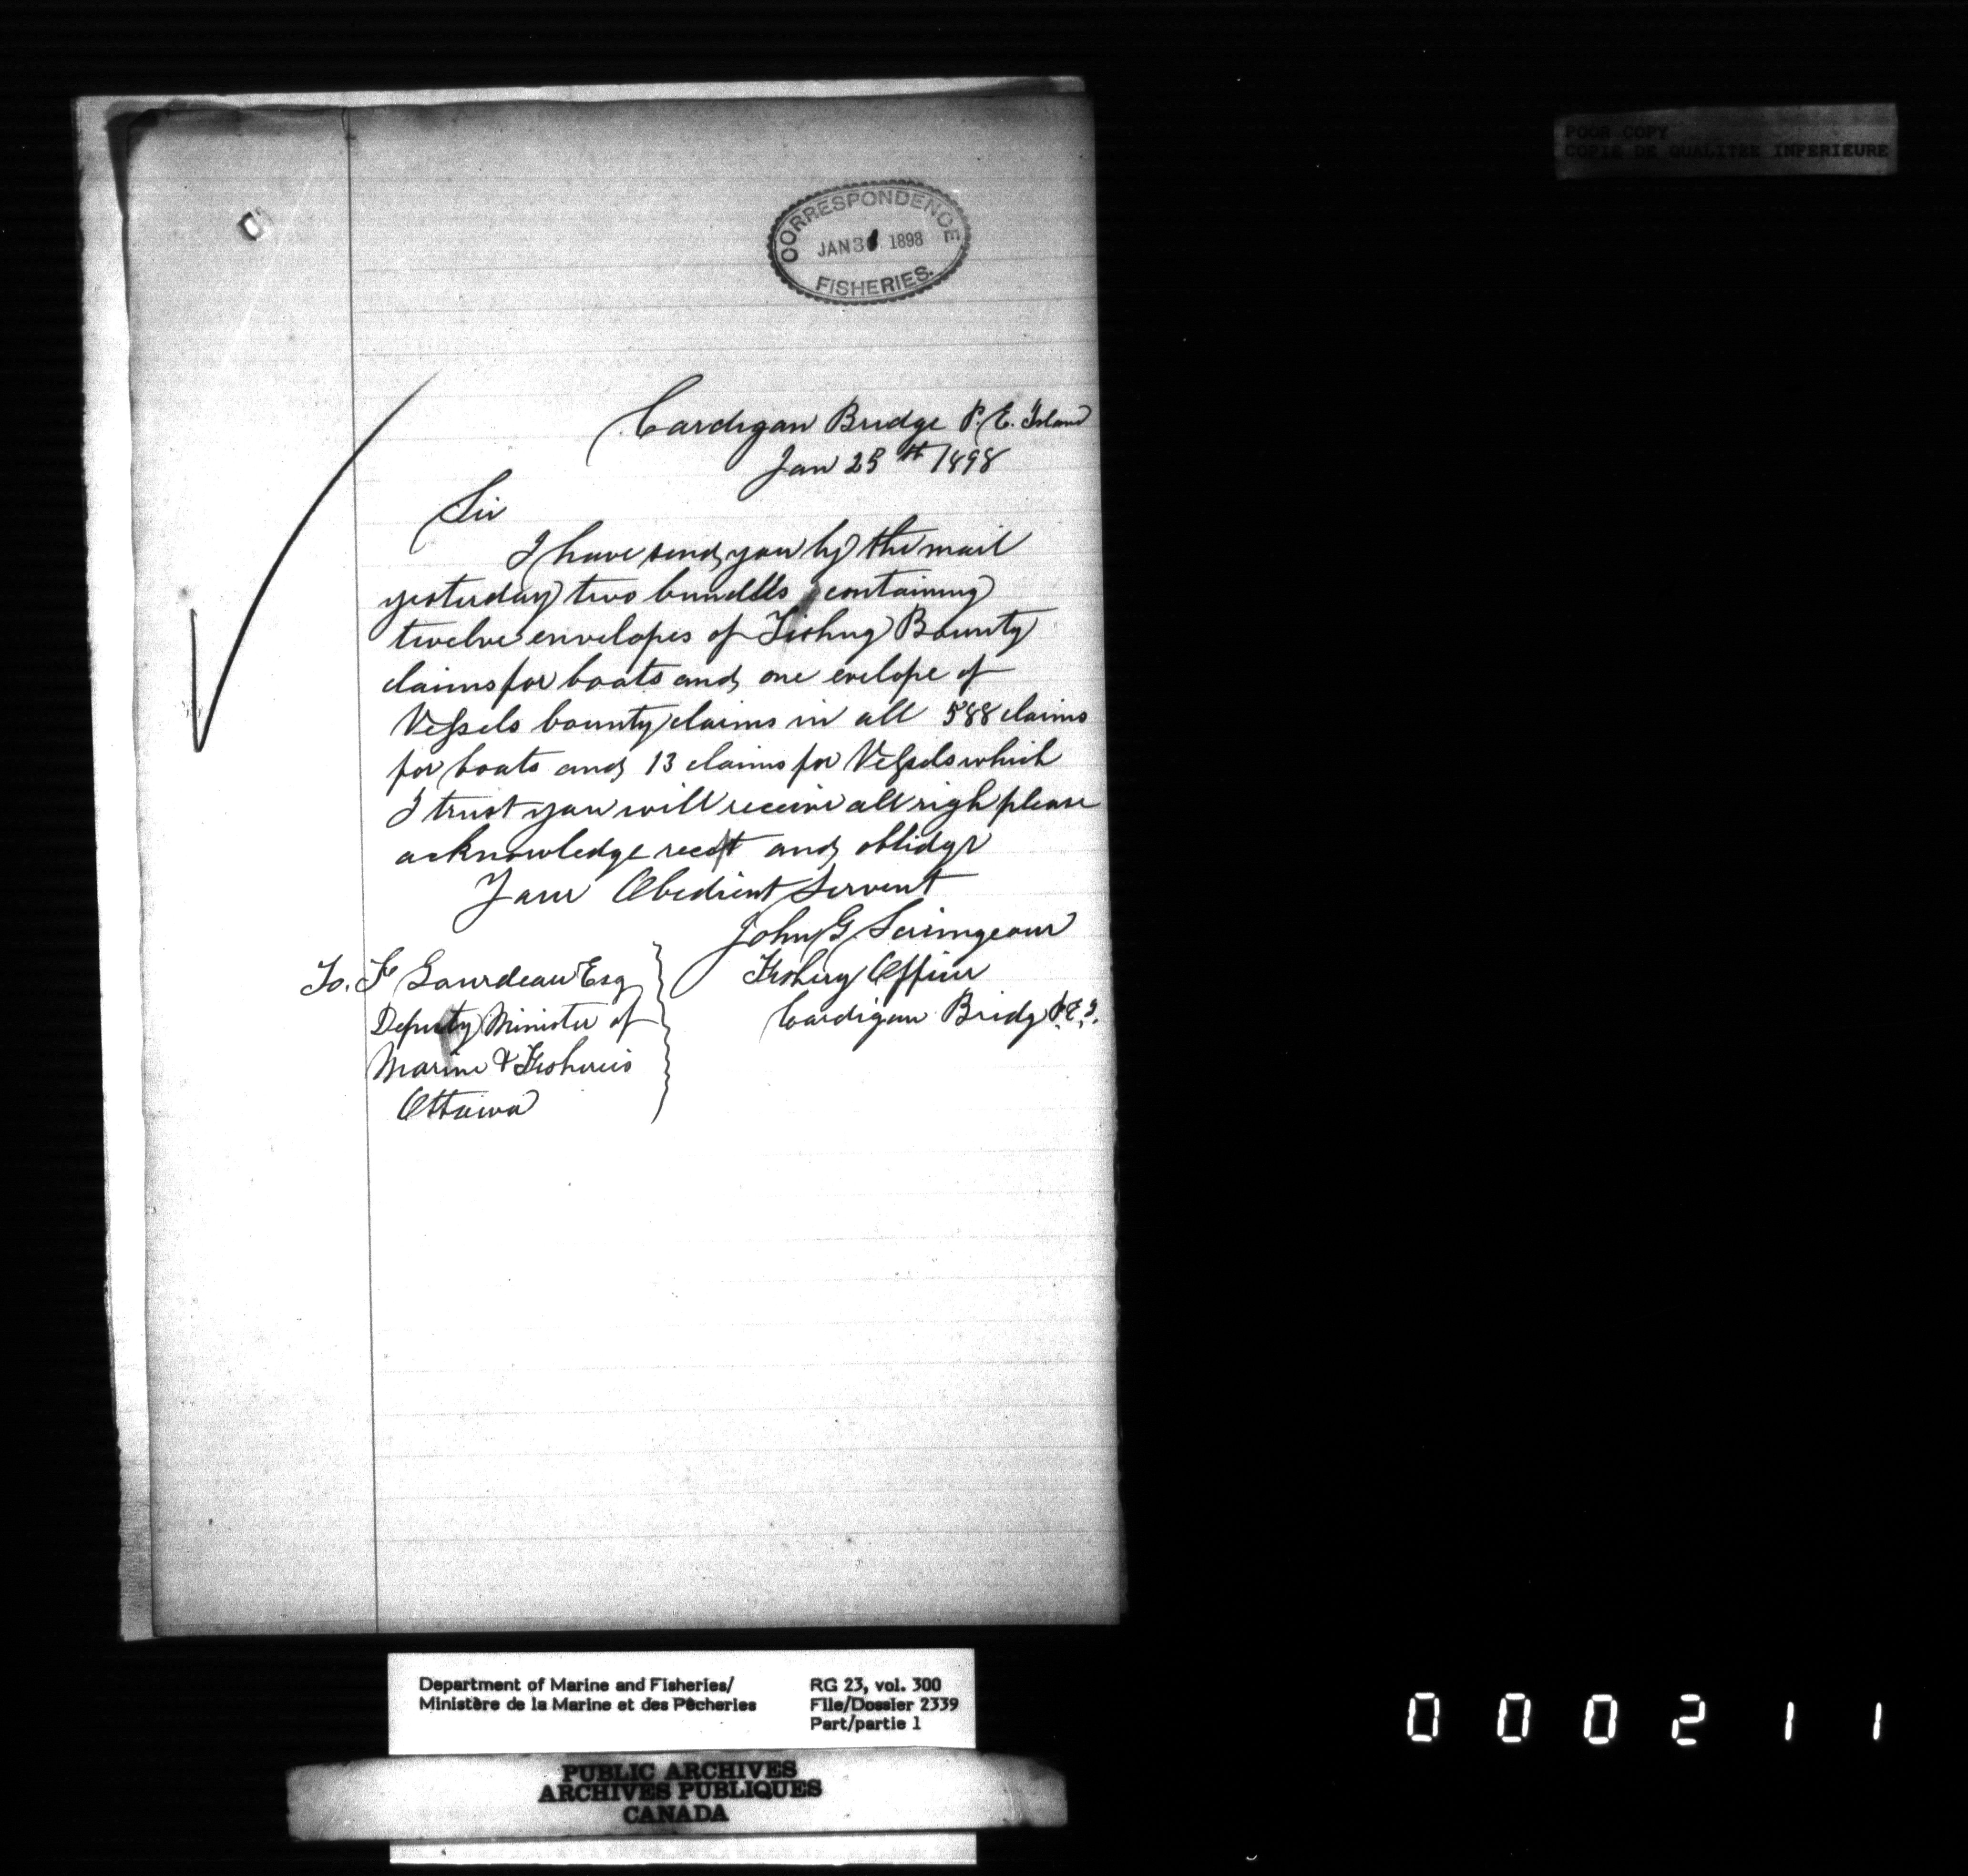 POOR COPY
COPIE DE QUALITEE INFERIEURE
CORRESPONDENCE
JAN 31 1898
FISHERIES.
Cardigan Bridge P. E. Island
Jan 25th 1898
Sir
I have send you by the mail
yesterday two bundles containing
twelve envelopes of Fishing Bounty
claims for boats and one evelope of
Vessels bounty claims in all 588 claims
for boats and 13 claims for Vessels which
I trust you will receive all righ please
acknowledge recet and oblidge
Your Obedient Servent
John G. Scrimgeour
Fishery Officer
Cardigan Bridg P.E.I.
To. F Gourdeau Esq
Deputy Minister of
Marine & Fisheries
Ottawa
Department of Marine and Fisheries/
Ministère de la Marine et des Pêcheries
RG 23, vol. 300
File/Dossier 2339
Part/partie 1
PUBLIC ARCHIVES
ARCHIVES PUBLIQUES
CANADA
000211